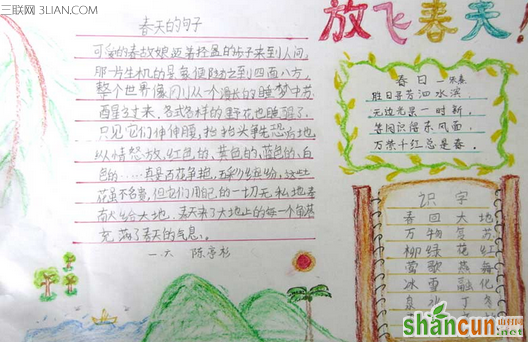 三联网 3LIAN.COM
放飞春天!
春天的句子
可爱的春姑娘迈着轻盈的步子来到人间,
那一片生机的景象便随之到四面八方,
整个世界像刚从一个漫长的睡梦中苏
醒过来,各式各样的野花也睡醒了,
只见它们伸伸腰,抬抬头争先恐后地,
纵情怒放,红色的,黄色的,蓝色的,白
色的……真是万花争艳,五彩缤纷,这些
花虽不名贵,但它们用自己的一切无私地奉
献给大地。春天来了大地上的每一个角落
充满了春天的气息。
一.六 陈
春日 —朱熹
胜日寻芳泗水滨
无边光景一时新,
等闲识得东风面,
万紫千红总是春。
识字
春回大地
万物复苏
柳绿花红
莺歌燕舞
冰雪融化
泉水丁冬
shancun